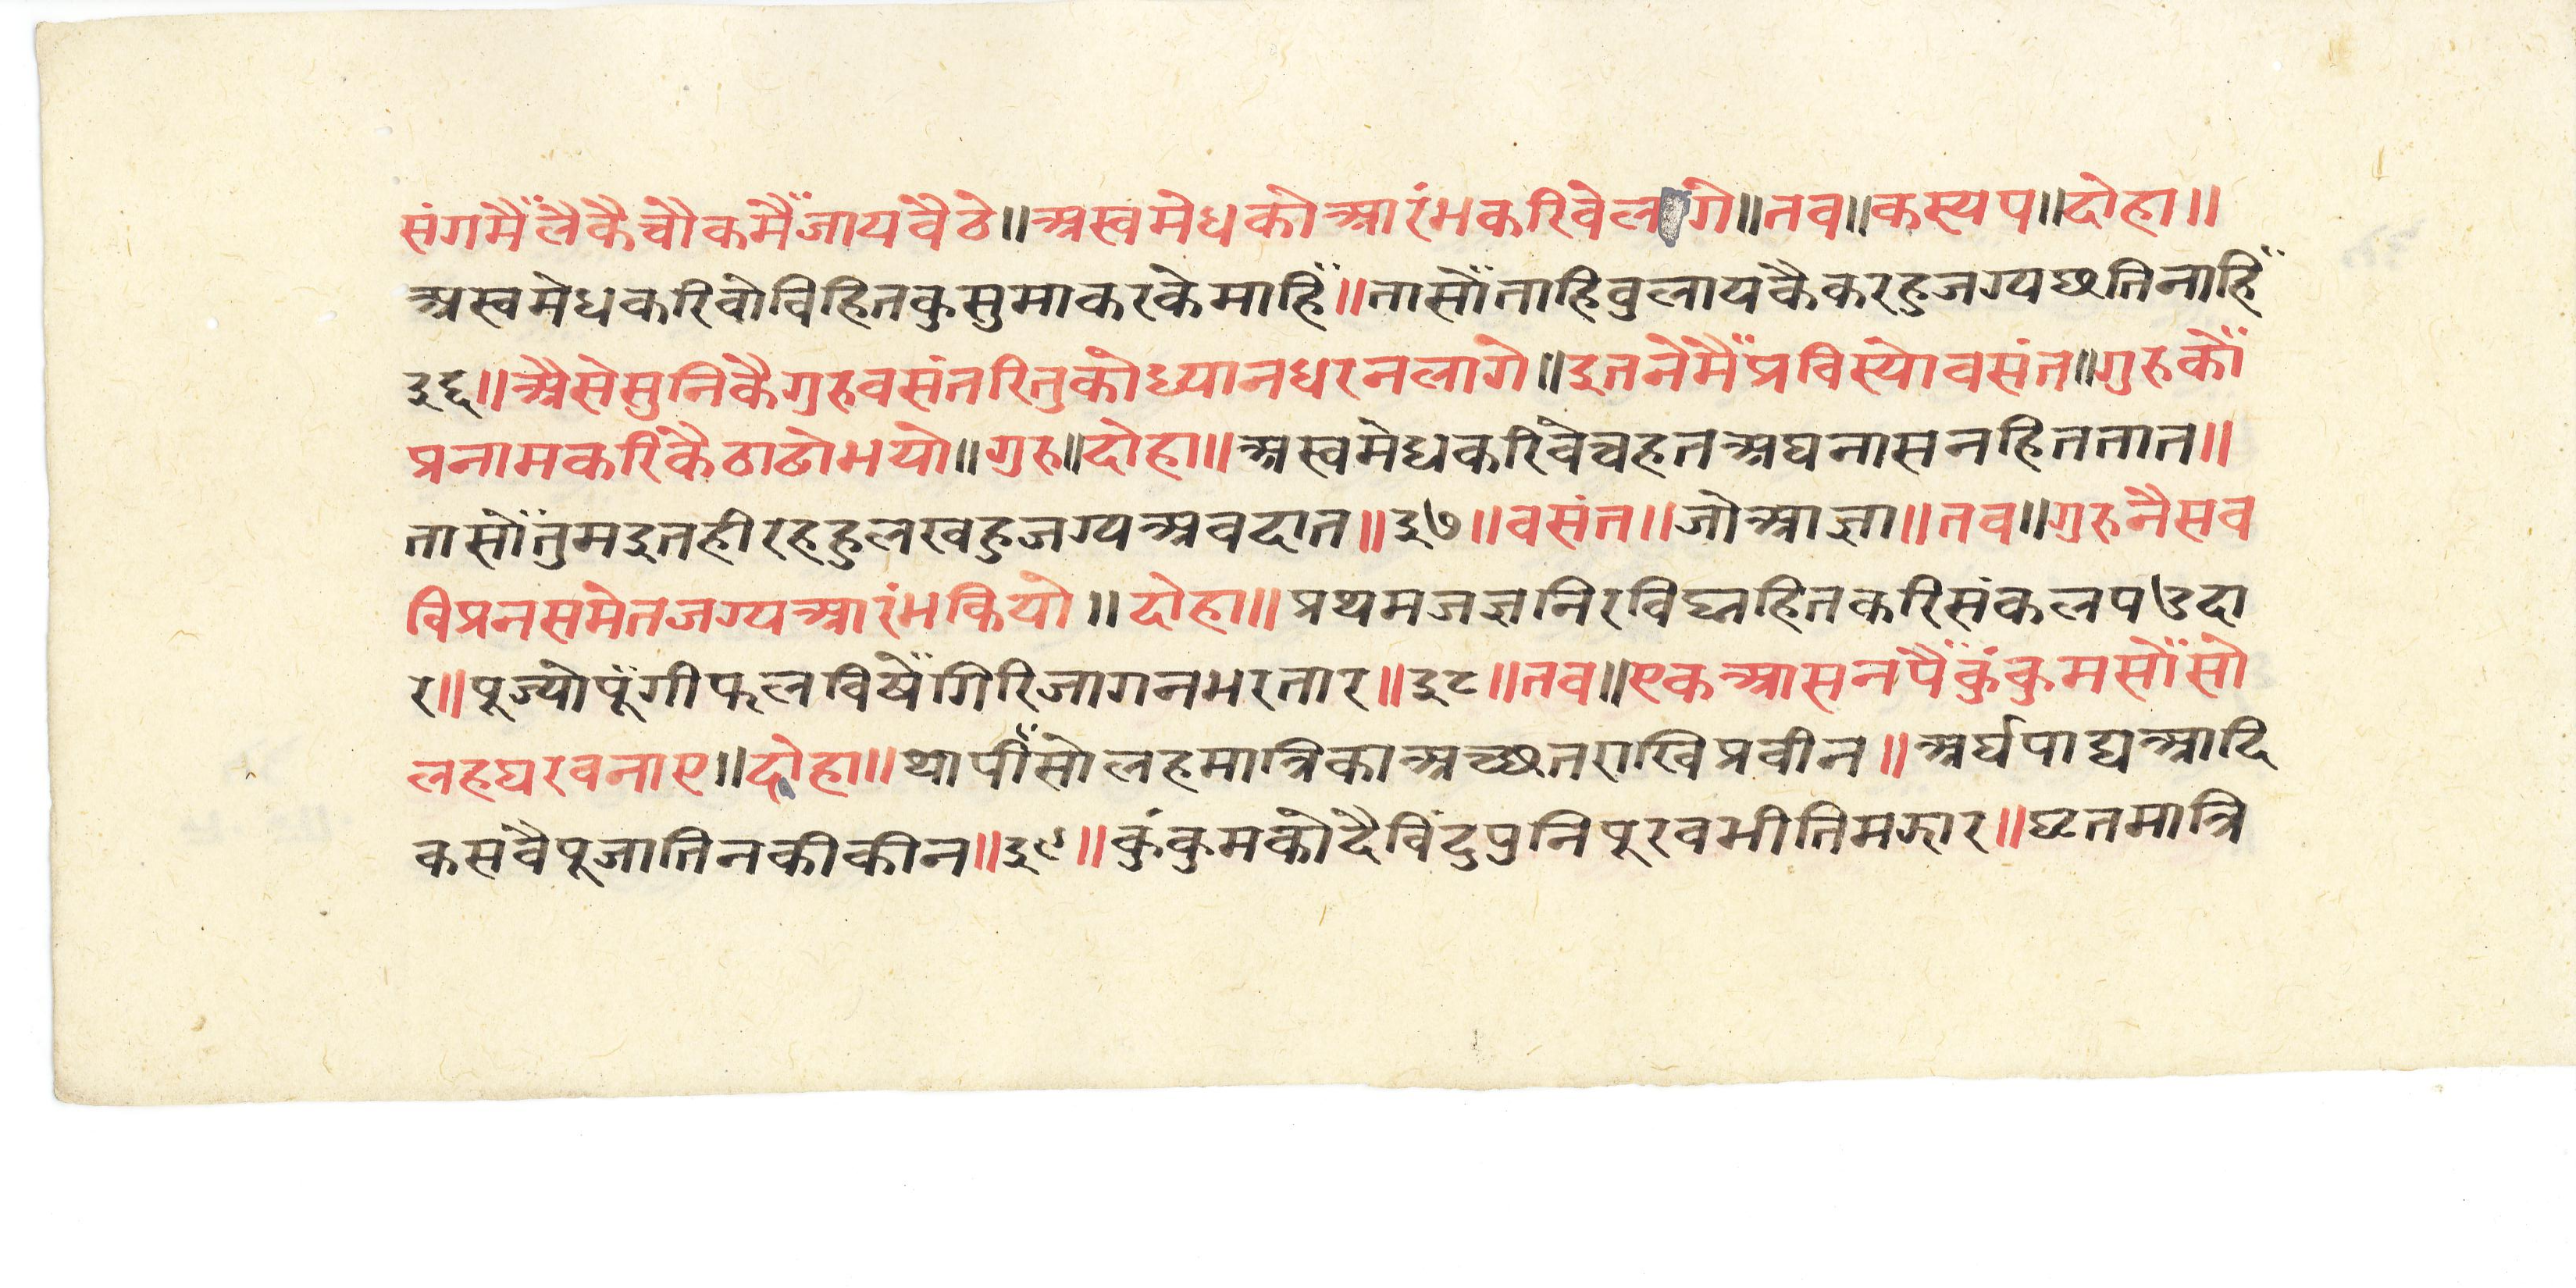 संगमैंलैकैचौकमैंजायवैठे॥अस्वमेधकोआरंभकरिवेलागे॥तव॥कस्यप॥दोहा॥
अस्वमेधकरिवोविहितकुसुमाकरकेमाहिं॥तासोंताहिवुलायकैकरहुजग्यछतिनाहिं
३६॥अैसेसुनिकैगुरुवसंतरितुकोध्यानधरनलागे॥इतनेमैंप्रविस्योवसंत॥गुरुकों
प्रनामकरिकैठाढोभयो॥गुरु॥दोहा॥अस्वमेधकरिवेचहतअघनासनहिततात॥
तासोंतुमइतहीरहहुलखहुजग्यअवदात॥३७॥वसंत॥जोआज्ञा॥तव॥गुरुनैसव
विप्रनसमेतजग्यआरंभकियो॥दोहा॥प्रथमजज्ञनिरविघ्नहितकरिसंकलपउदा
र॥पूज्योपूंगीफलविषेंगिरिजागनभरतार॥३८॥तव॥एकआसनपैंकुंकुमसोंसो
लहघरवनाए॥दोहा॥थापींसोलहमात्रिकाअच्छतराखिप्रवीन॥अर्घपाद्यआदि
कसवैपूजातिनकीकीन॥३९॥कुंकुमकोदैविंदुपुनिपूरवभीतिमझार॥घृतमात्रि